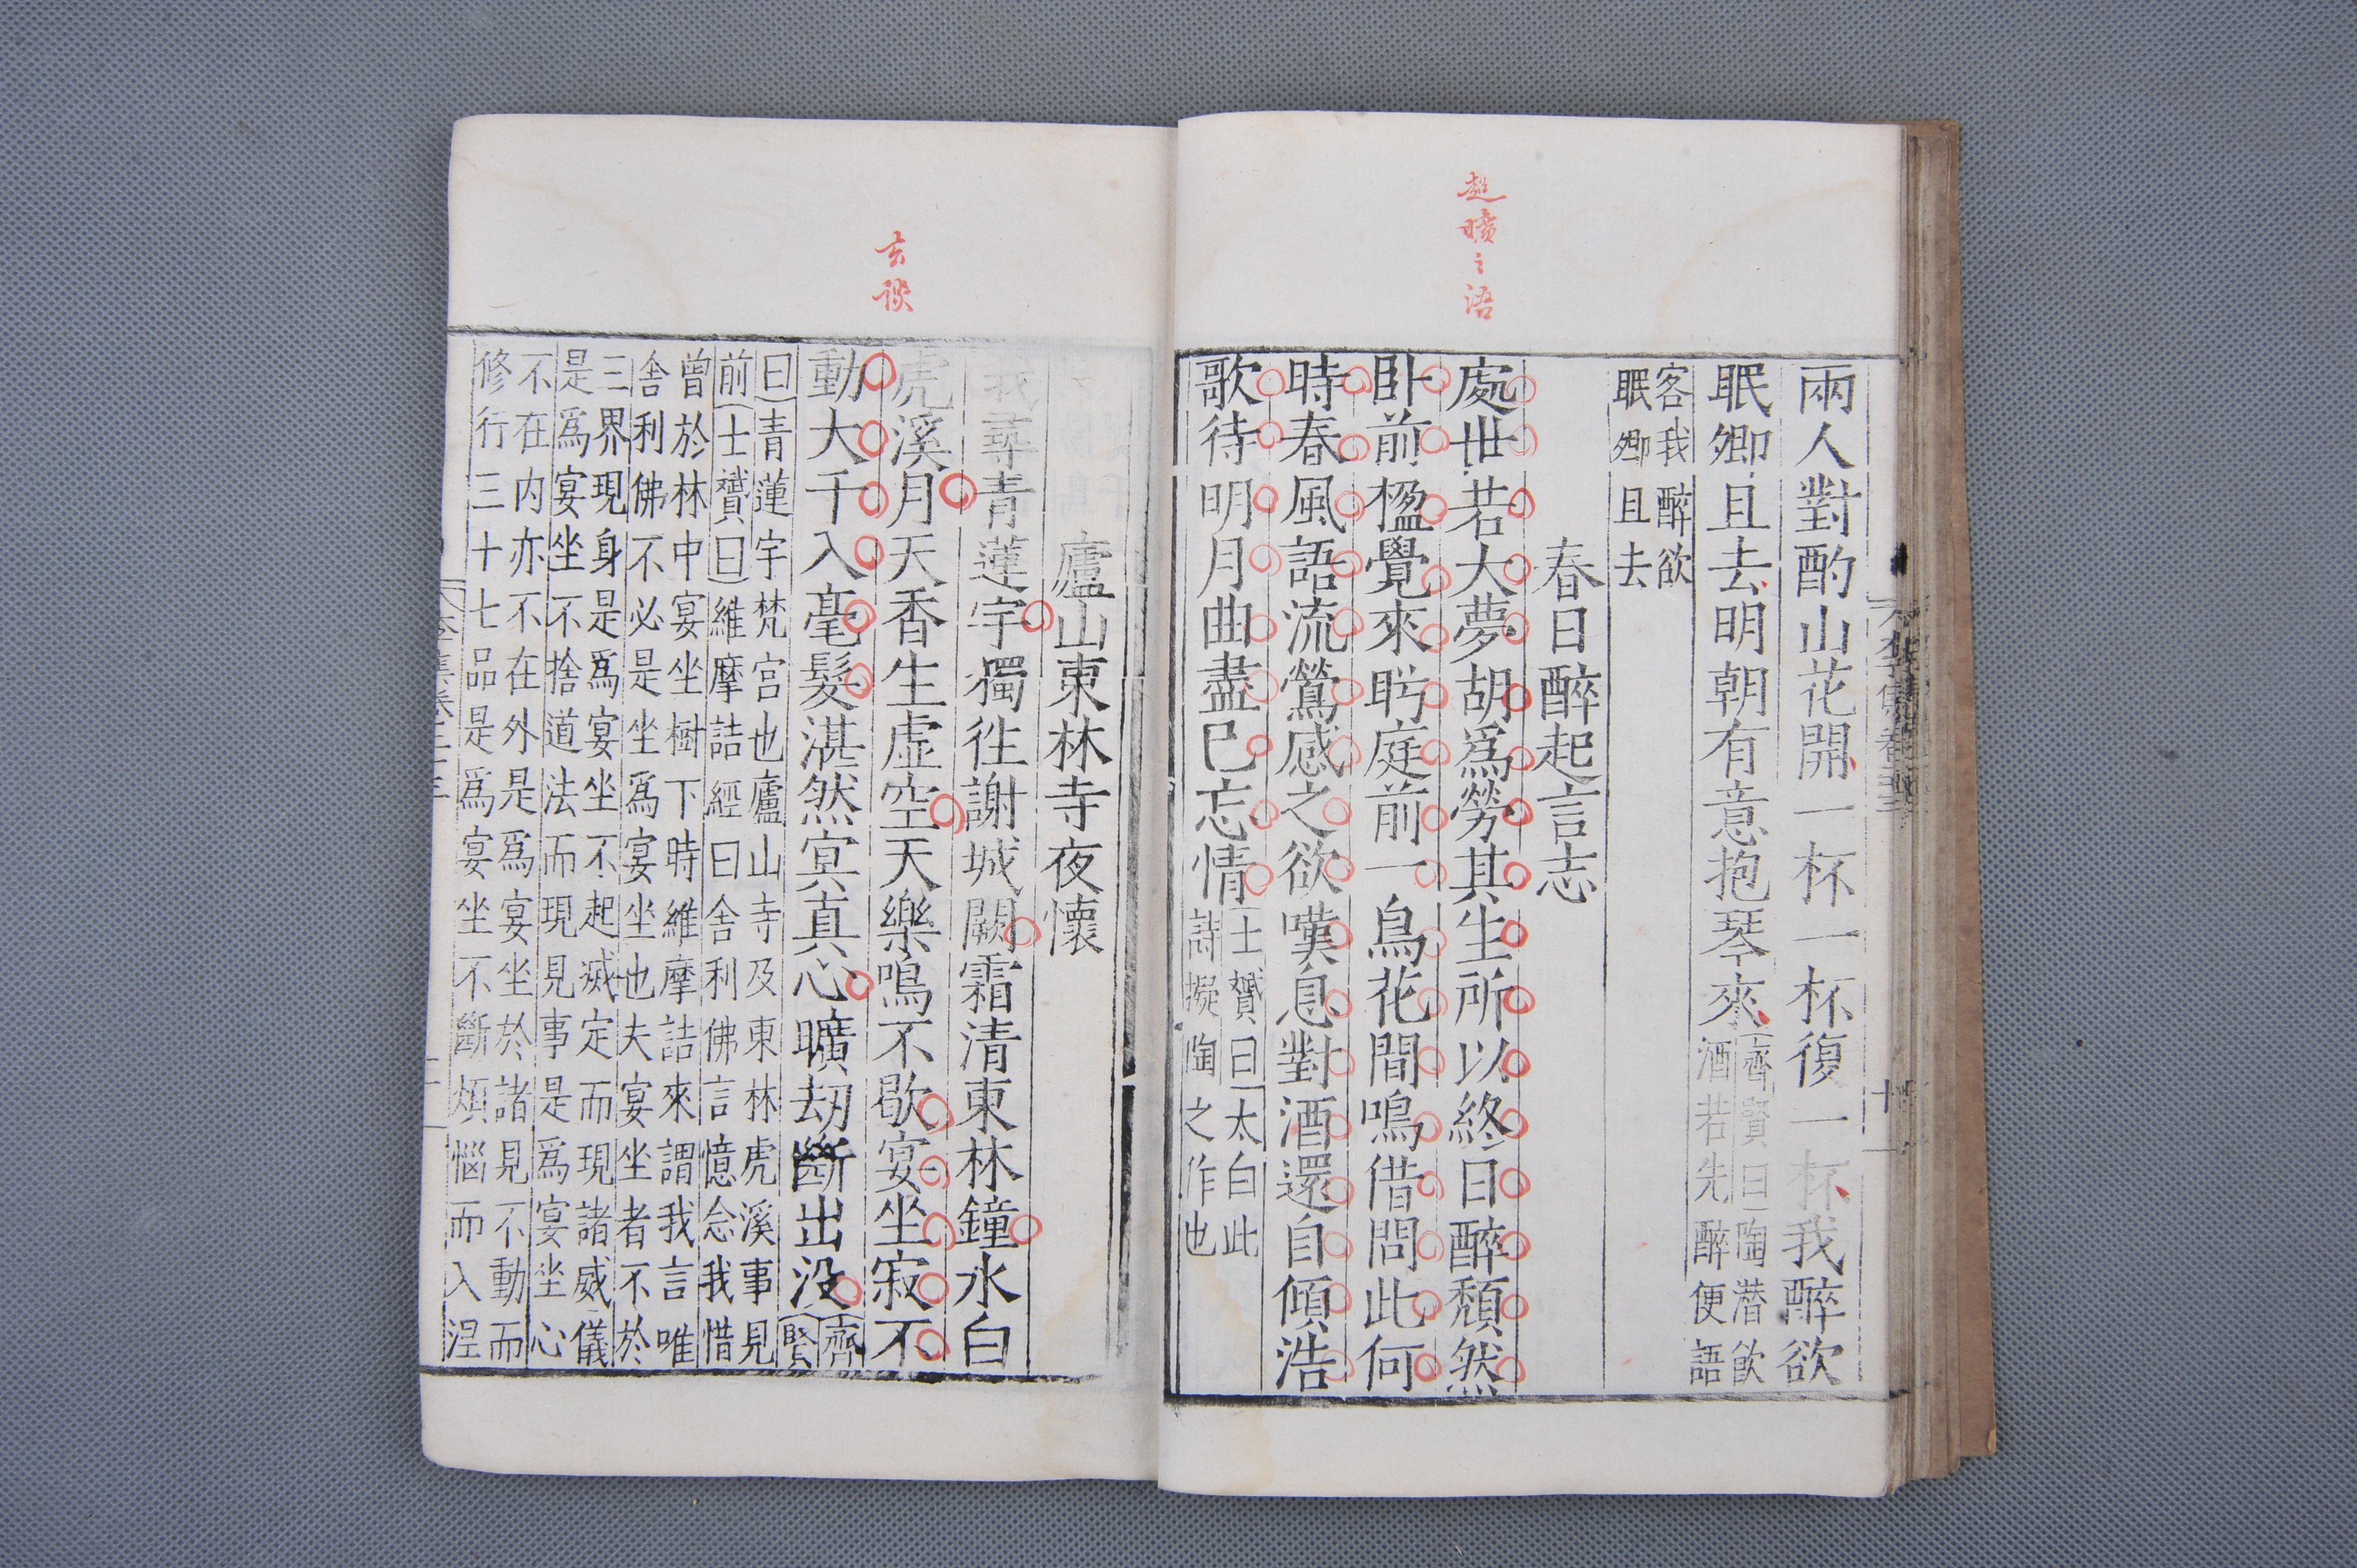 超曠之語
兩人對酌山花開一杯一杯復一杯我醉欲
眠卿且去明朝有意抱琴來
齊賢曰陶潛飲
酒若先醉便語
客我醉欲
眠卿且去
春日醉起言志
處世若大夢胡爲勞其生所以終日醉頽然
卧前楹覺來眄庭前一鳥花間鳴借問此何
時春風語流鶯感之欲嘆息對酒還自傾浩
歌待明月曲盡已忘情
士贇曰太白此
詩擬陶之作也
玄談
廬山東林寺夜懷
我尋青蓮宇獨徃謝城闕霜清東林鐘水白
虎溪月天香生虛空天樂鳴不歇宴坐寂不
動大千入毫髮湛然冥真心曠劫斷出没
齊
賢
曰青蓮宇梵宫也廬山寺及東林虎溪事見
前士贇曰維摩詰經曰舍利佛言憶念我惜
曾於林中宴坐樹下時維摩詰來謂我言唯
舍利佛不必是坐爲宴坐也夫宴坐者不於
三界現身是爲宴坐不起滅定而現諸威儀
是爲宴坐不捨道法而現見事是爲宴坐心
不在内亦不在外是爲宴坐於諸見不動而
修行三十七品是爲宴坐不斷煩惱而入涅